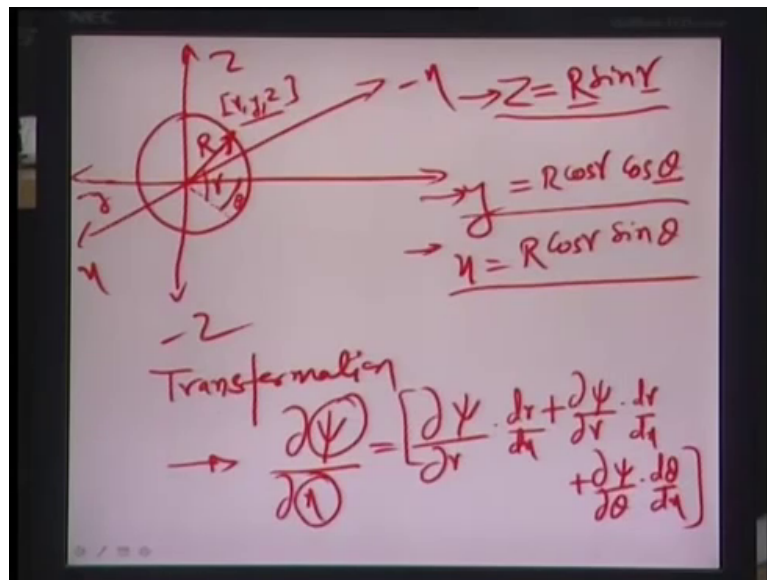 NEC
Z
[x, y, z]
-x → Z = R sin γ
R
γ
θ
y
→ y = R cos γ cos θ
x
→ x = R cos γ sin θ
-Z
Transformation
→ ∂ψ/∂x = [∂ψ/∂r · dr/dx + ∂ψ/∂γ · dγ/dx
+ ∂ψ/∂θ · dθ/dx]